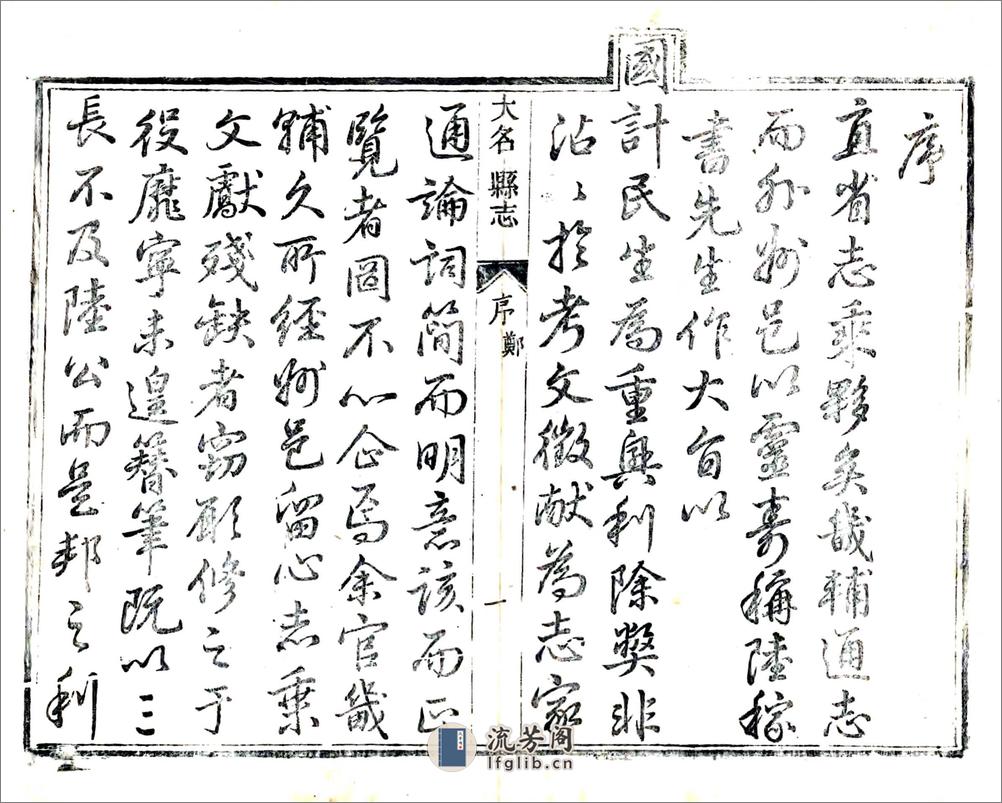 序
直省志乘夥矣畿輔通志
而外州邑以靈壽稱陸稼
書先生作大旨以
國
計民生為重興利除獘非
沾沾於考文徵献為志家
大名縣志
序鄭
一
通論詞簡而明意該而正
覽者圖不心企焉余官畿
輔久所經州邑留心志乗
文獻殘缺者窃願修之于
役靡寧未遑簪筆既以三
長不及陸公而是邦之利
流芳阁
lfglib.cn